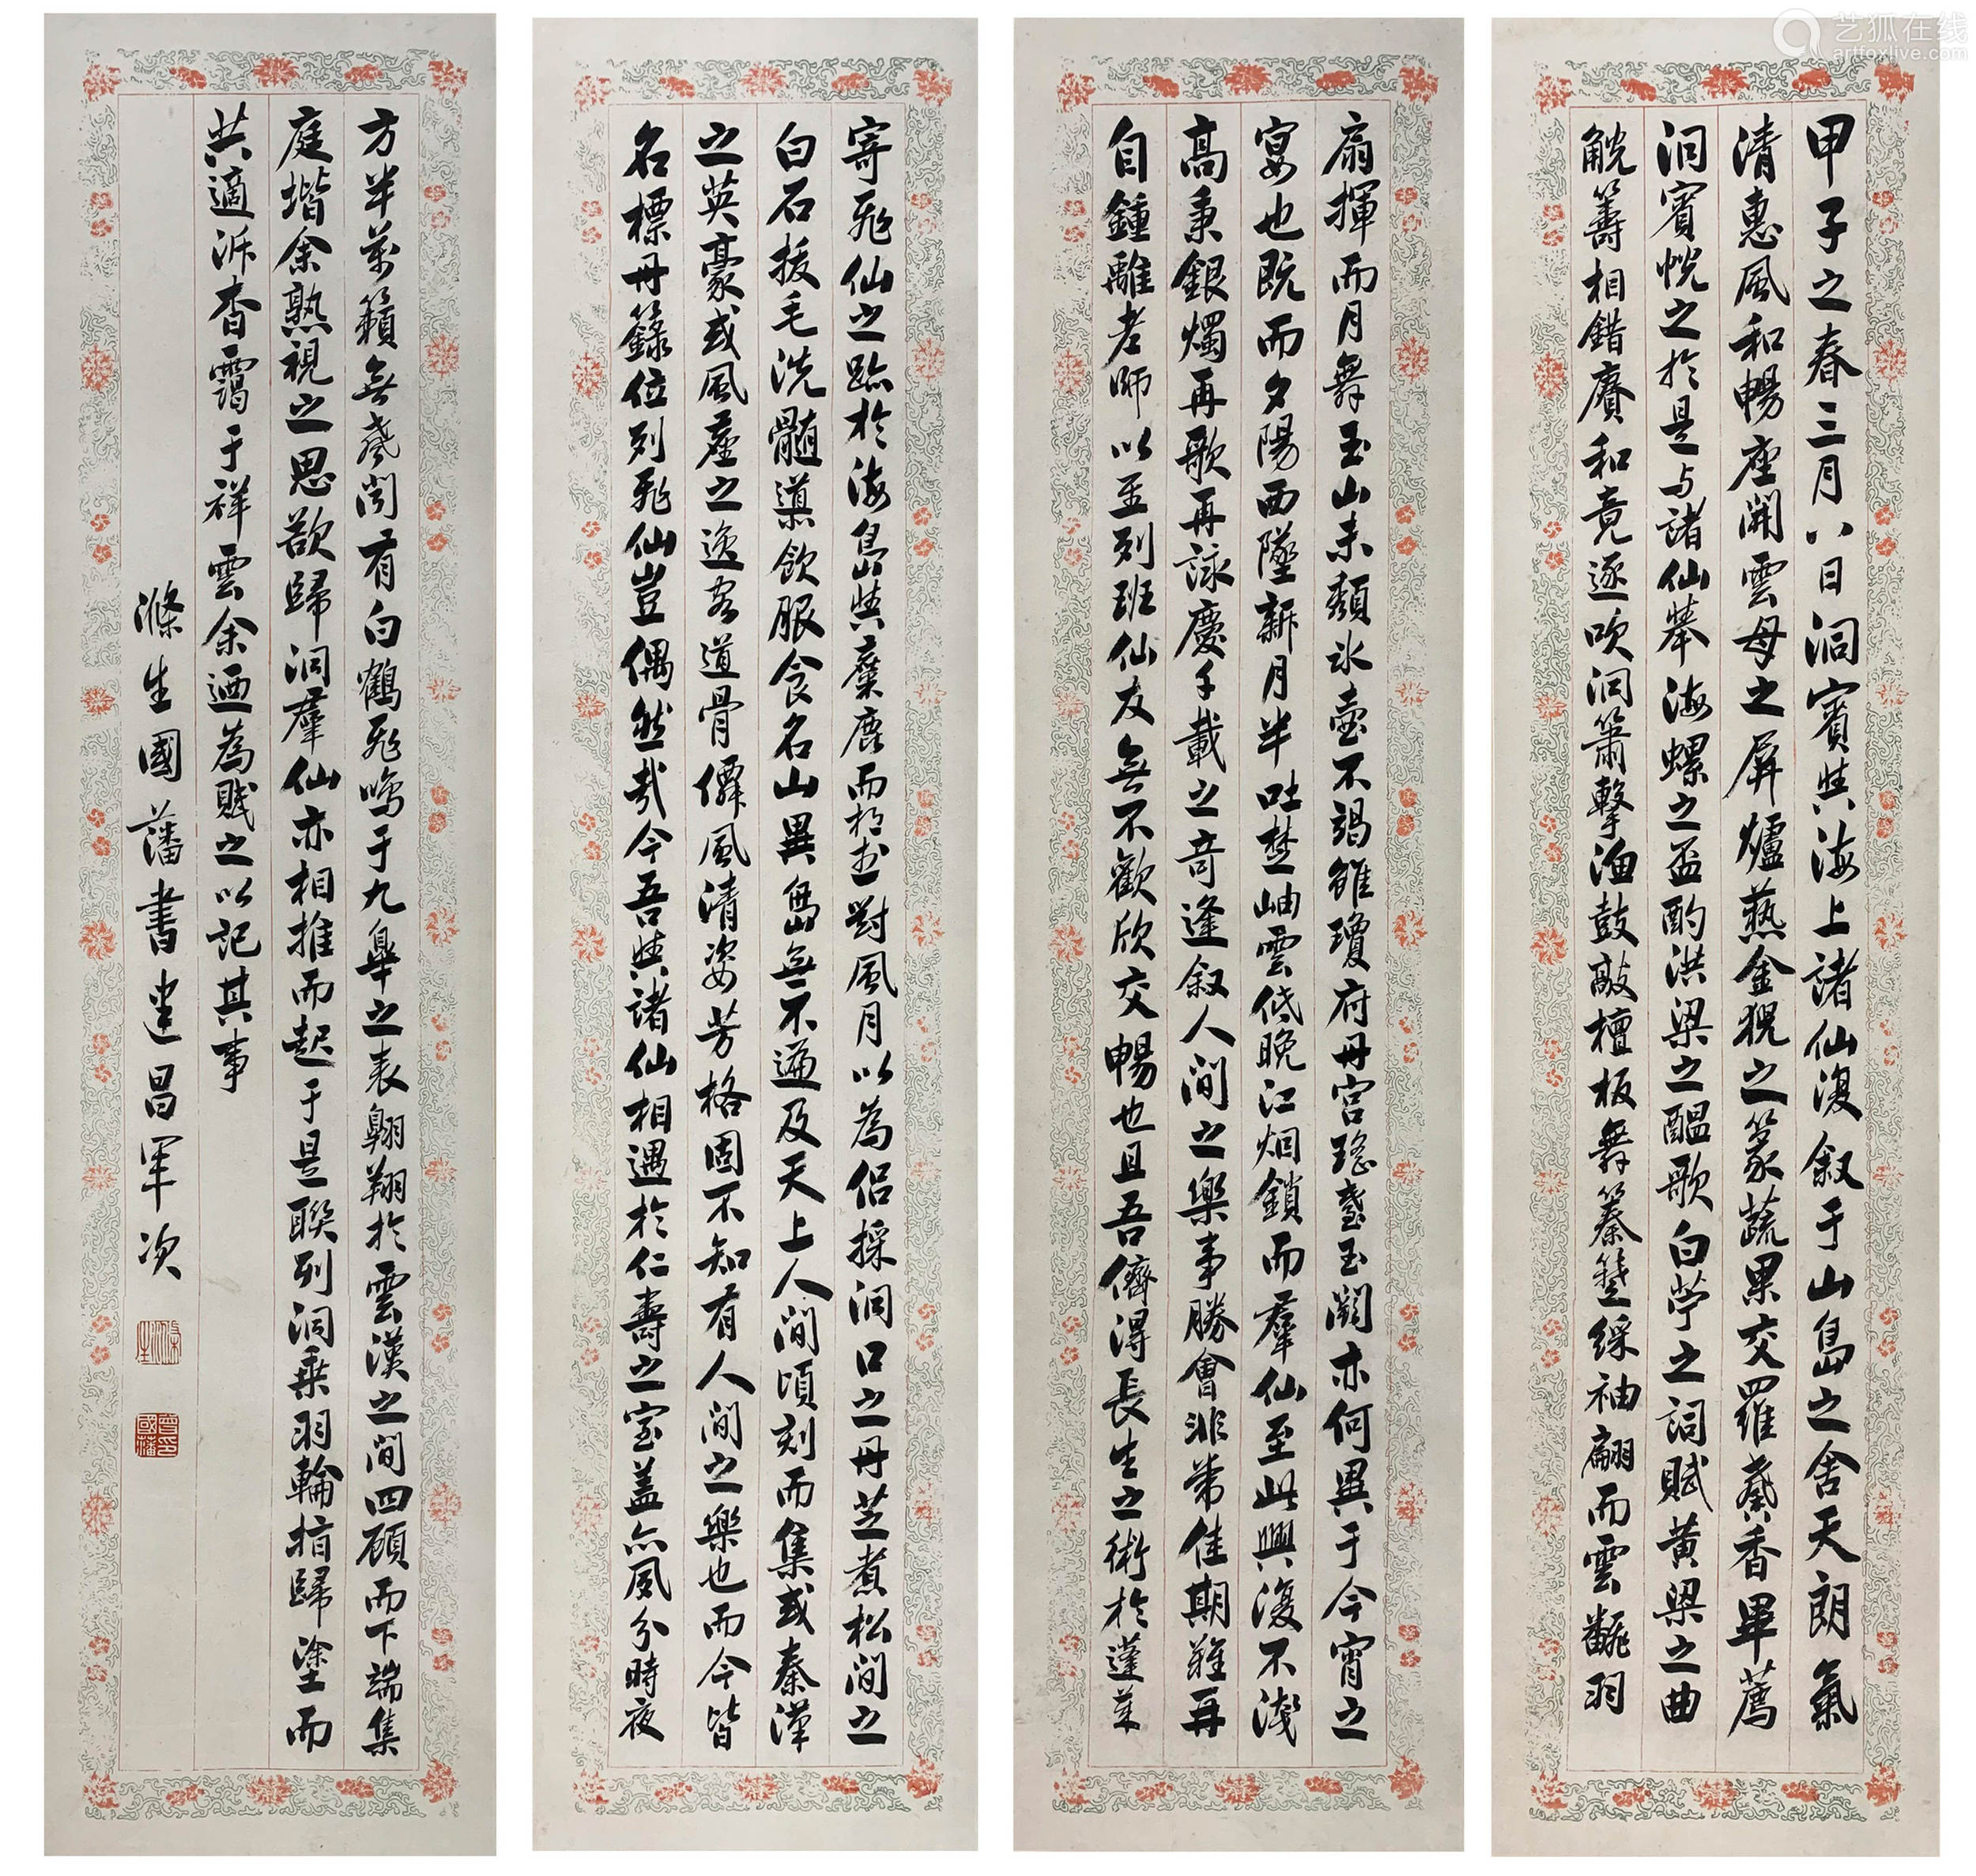 甲子之春三月八日洞賓與海上諸仙復叙于山島之舍天朗氣
清惠風和暢座開雲母之屏爐爇金猊之篆蔬果交羅蘂香畢薦
洞賓恍之於是与諸仙舉海螺之盃酌洪梁之醞歌白苧之詞賦黄梁之曲
觥籌相錯賡和竟逐吹洞簫擊漁鼓敲檀板舞蓁簦綵袖翩而雲翻羽
扇揮而月舞玉山未頹氷壺不竭雖瓊府丹宮瑤臺玉闕亦何異于今宵之
宴也既而夕陽西墜新月半吐楚岫雲低晚江烟鎖而羣仙至此興復不淺
高秉銀燭再歌再詠慶千載之奇逢叙人間之樂事勝會非常佳期難再
自鍾離老師以至列班仙友無不歡欣交暢也且吾儕得長生之術於蓬莱
寄飛仙之跡於海島與麋鹿而相狎對風月以為侣採洞口之丹芝煮松間之
白石拔毛洗髓導飲服食名山異島無不遍及天上人間頃刻而集或秦漢
之英豪或風塵之逸客道骨僊風清姿芳格固不知有人間之樂也而今皆
名標丹籙位列飛仙豈偶然哉今吾與諸仙相遇於仁壽之室盖亦夙分時夜
方半萬籟無聲閃有白鶴飛鳴于九皋之表翱翔於雲漢之間四顧而下端集
庭堦余熟視之思欲歸洞羣仙亦相推而起于是聯列洞乗羽輪指歸塗而
共適泝杳靄于祥雲余迺為賦之以記其事
滌生國藩書建昌軍次
滌生
曾國藩印
艺狐在线
artfoxlive.com